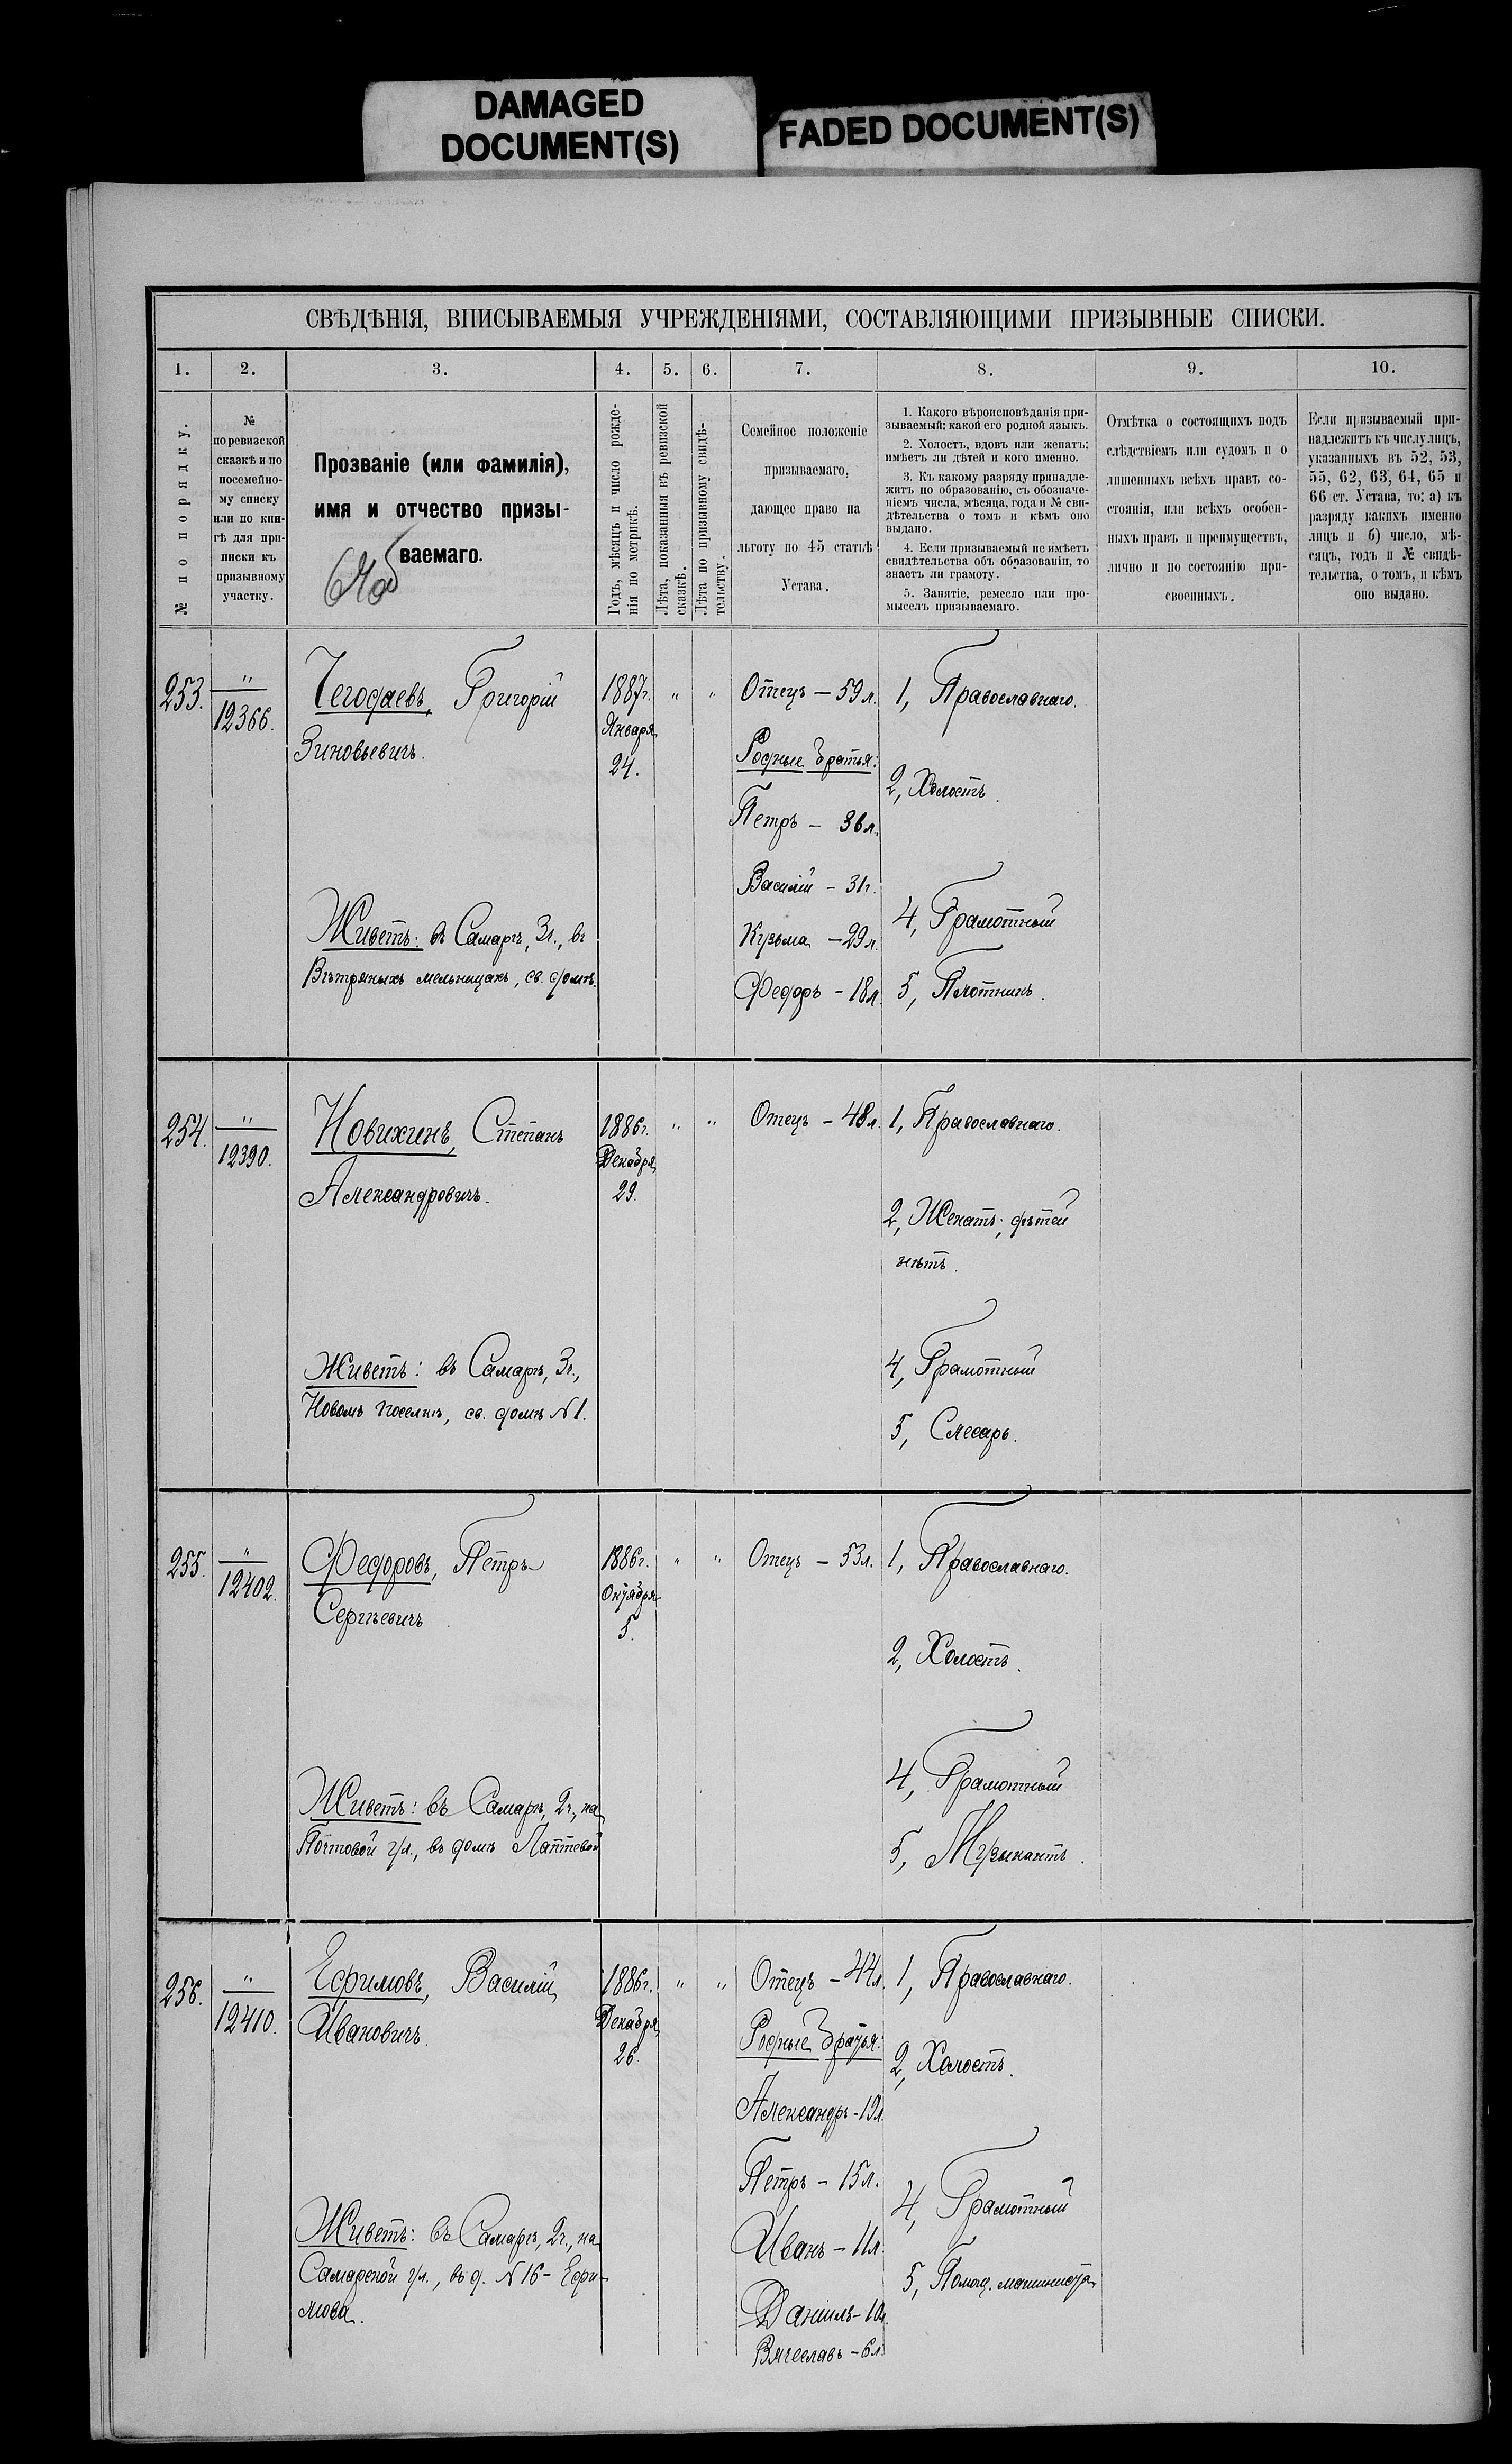 DAMAGED
DOCUMENT(S)
FADED DOCUMENT(S)
СВѢДѢНІЯ, ВПИСЫВАЕМЫЯ УЧРЕЖДЕНІЯМИ, СОСТАВЛЯЮЩИМИ ПРИЗЫВНЫЕ СПИСКИ.
1. 2. 3. 4. 5. 6. 7. 8. 9. 10.
№ по порядку.
№
по ревизской
сказкѣ и по
посемейно-
му списку
или по кни-
гѣ для при-
писки къ
призывному
участку.
Прозваніе (или фамилія),
имя и отчество призы-
ваемаго.
Годъ, мѣсяцъ и число рожде-
нія по метрикѣ.
Лѣта, показанныя въ ревизской
сказкѣ.
Лѣта по призывному свидѣ-
тельству.
Семейное положеніе
призываемаго,
дающее право на
льготу по 45 статьѣ
Устава.
1. Какого вѣроисповѣданія при-
зываемый: какой его родной языкъ.
2. Холостъ, вдовъ или женатъ:
имѣетъ ли дѣтей и кого именно.
3. Къ какому разряду принадле-
житъ по образованію, съ обозначе-
ніемъ числа, мѣсяца, года и № сви-
дѣтельства о томъ и кѣмъ оно
выдано.
4. Если призываемый не имѣетъ
свидѣтельства объ образованіи, то
знаетъ ли грамоту.
5. Занятіе, ремесло или про-
мыселъ призываемаго.
Отмѣтка о состоящихъ подъ
слѣдствіемъ или судомъ и о
лишенныхъ всѣхъ правъ со-
стоянія, или всѣхъ особен-
ныхъ правъ и преимуществъ,
лично и по состоянію при-
своенныхъ.
Если призываемый при-
надлежитъ къ числу лицъ,
указанныхъ въ 52, 53,
55, 62, 63, 64, 65 и
66 ст. Устава, то: а) къ
разряду какихъ именно
лицъ и б) число, мѣ-
сяцъ, годъ и № свидѣ-
тельства, о томъ, и кѣмъ
оно выдано.
253.
"
12366.
Чегодаевъ, Григорій
Зиновьевичъ.
Живетъ: въ Самарѣ, 3ч., въ
Вѣтряныхъ мельницахъ, св. домѣ.
1887г.
Января
24.
" "
Отецъ – 59 л.
Родные братья:
Петръ – 36 л.
Василій – 31 г.
Кузьма – 29 л.
Федоръ – 18 л.
1, Православнаго.
2, Холостъ.
4, Грамотный
5, Плотникъ.
254.
"
12390.
Новихинъ, Степанъ
Александровичъ.
Живетъ: въ Самарѣ, 3ч.,
Новомъ поселкѣ, св. домѣ №1.
1886г.
Декабря
29.
" "
Отецъ – 48 л.
1, Православнаго.
2, Женатъ; дѣтей
нѣтъ.
4, Грамотный
5, Слесарь.
255.
"
12402.
Федоровъ, Петръ
Сергѣевичъ
Живетъ: въ Самарѣ, 2ч., на
Почтовой ул., въ домѣ Лаптевой
1886г.
Октября
5.
" "
Отецъ – 53 л.
1, Православнаго.
2, Холостъ.
4, Грамотный
5, Музыкантъ.
256.
"
12410.
Ефимовъ, Василій
Ивановичъ.
Живетъ: въ Самарѣ, 2ч., на
Самарской ул., въ д. №16 – Ефи-
мова.
1886г.
Декабря
26.
" "
Отецъ – 44 л.
Родные братья:
Александръ – 19 л.
Петръ – 15 л.
Иванъ – 11 л.
Даніилъ – 10 л.
Вячеславъ – 6 л.
1, Православнаго.
2, Холостъ.
4, Грамотный
5, Помощ. машиниста